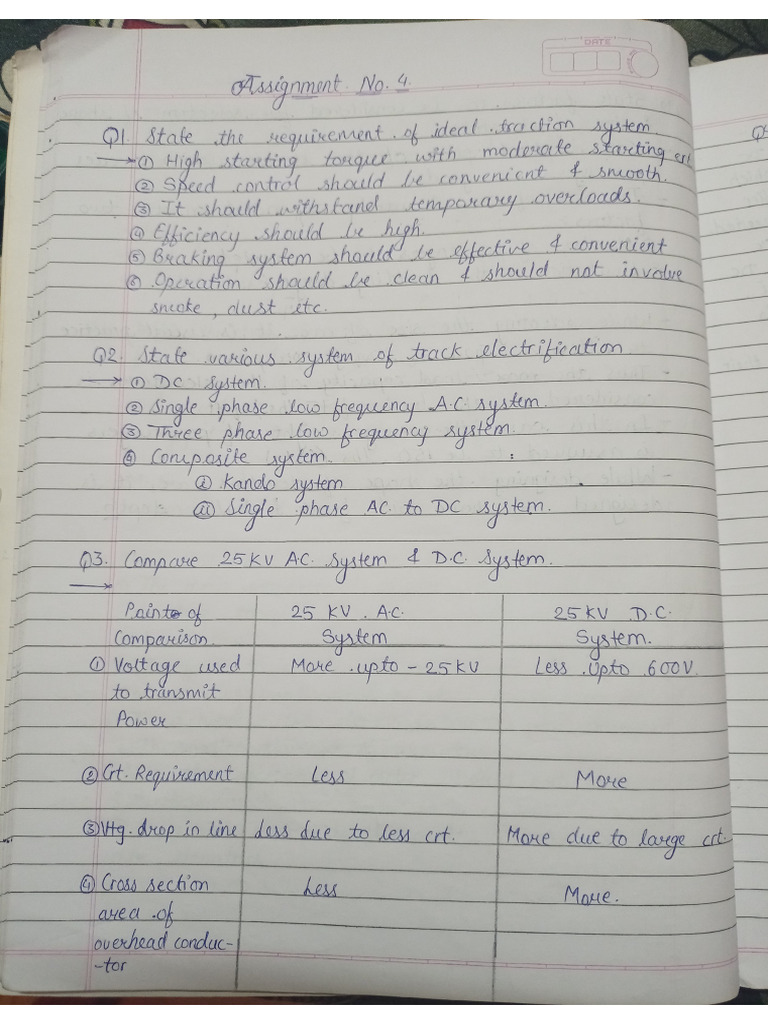 DATE
Assignment No. 4.
Q1. State the requirement of ideal traction system
① High starting torque with moderate starting crt
② Speed control should be convenient & smooth.
③ It should withstand temporary overloads.
④ Efficiency should be high.
⑤ Braking system should be effective & convenient
⑥ Operation should be clean & should not involve
smoke, dust etc.
Q2. State various system of track electrification
① DC system.
② Single phase low frequency A.C. system.
③ Three phase low frequency system.
④ Composite system.
ⓘ Kando system
ⓘⓘ Single phase AC to DC system.
Q3. Compare 25KV A.C. System & D.C. System.
Point of 25 KV . A.C. 25 KV D.C.
Comparison System System.
① Voltage used More upto - 25 KV Less upto 600V.
to transmit
Power
② Crt. Requirement Less More
③ Vtg. drop in line Less due to less crt. More due to large crt.
④ Cross section Less More.
area of
overhead conduc-
-tor